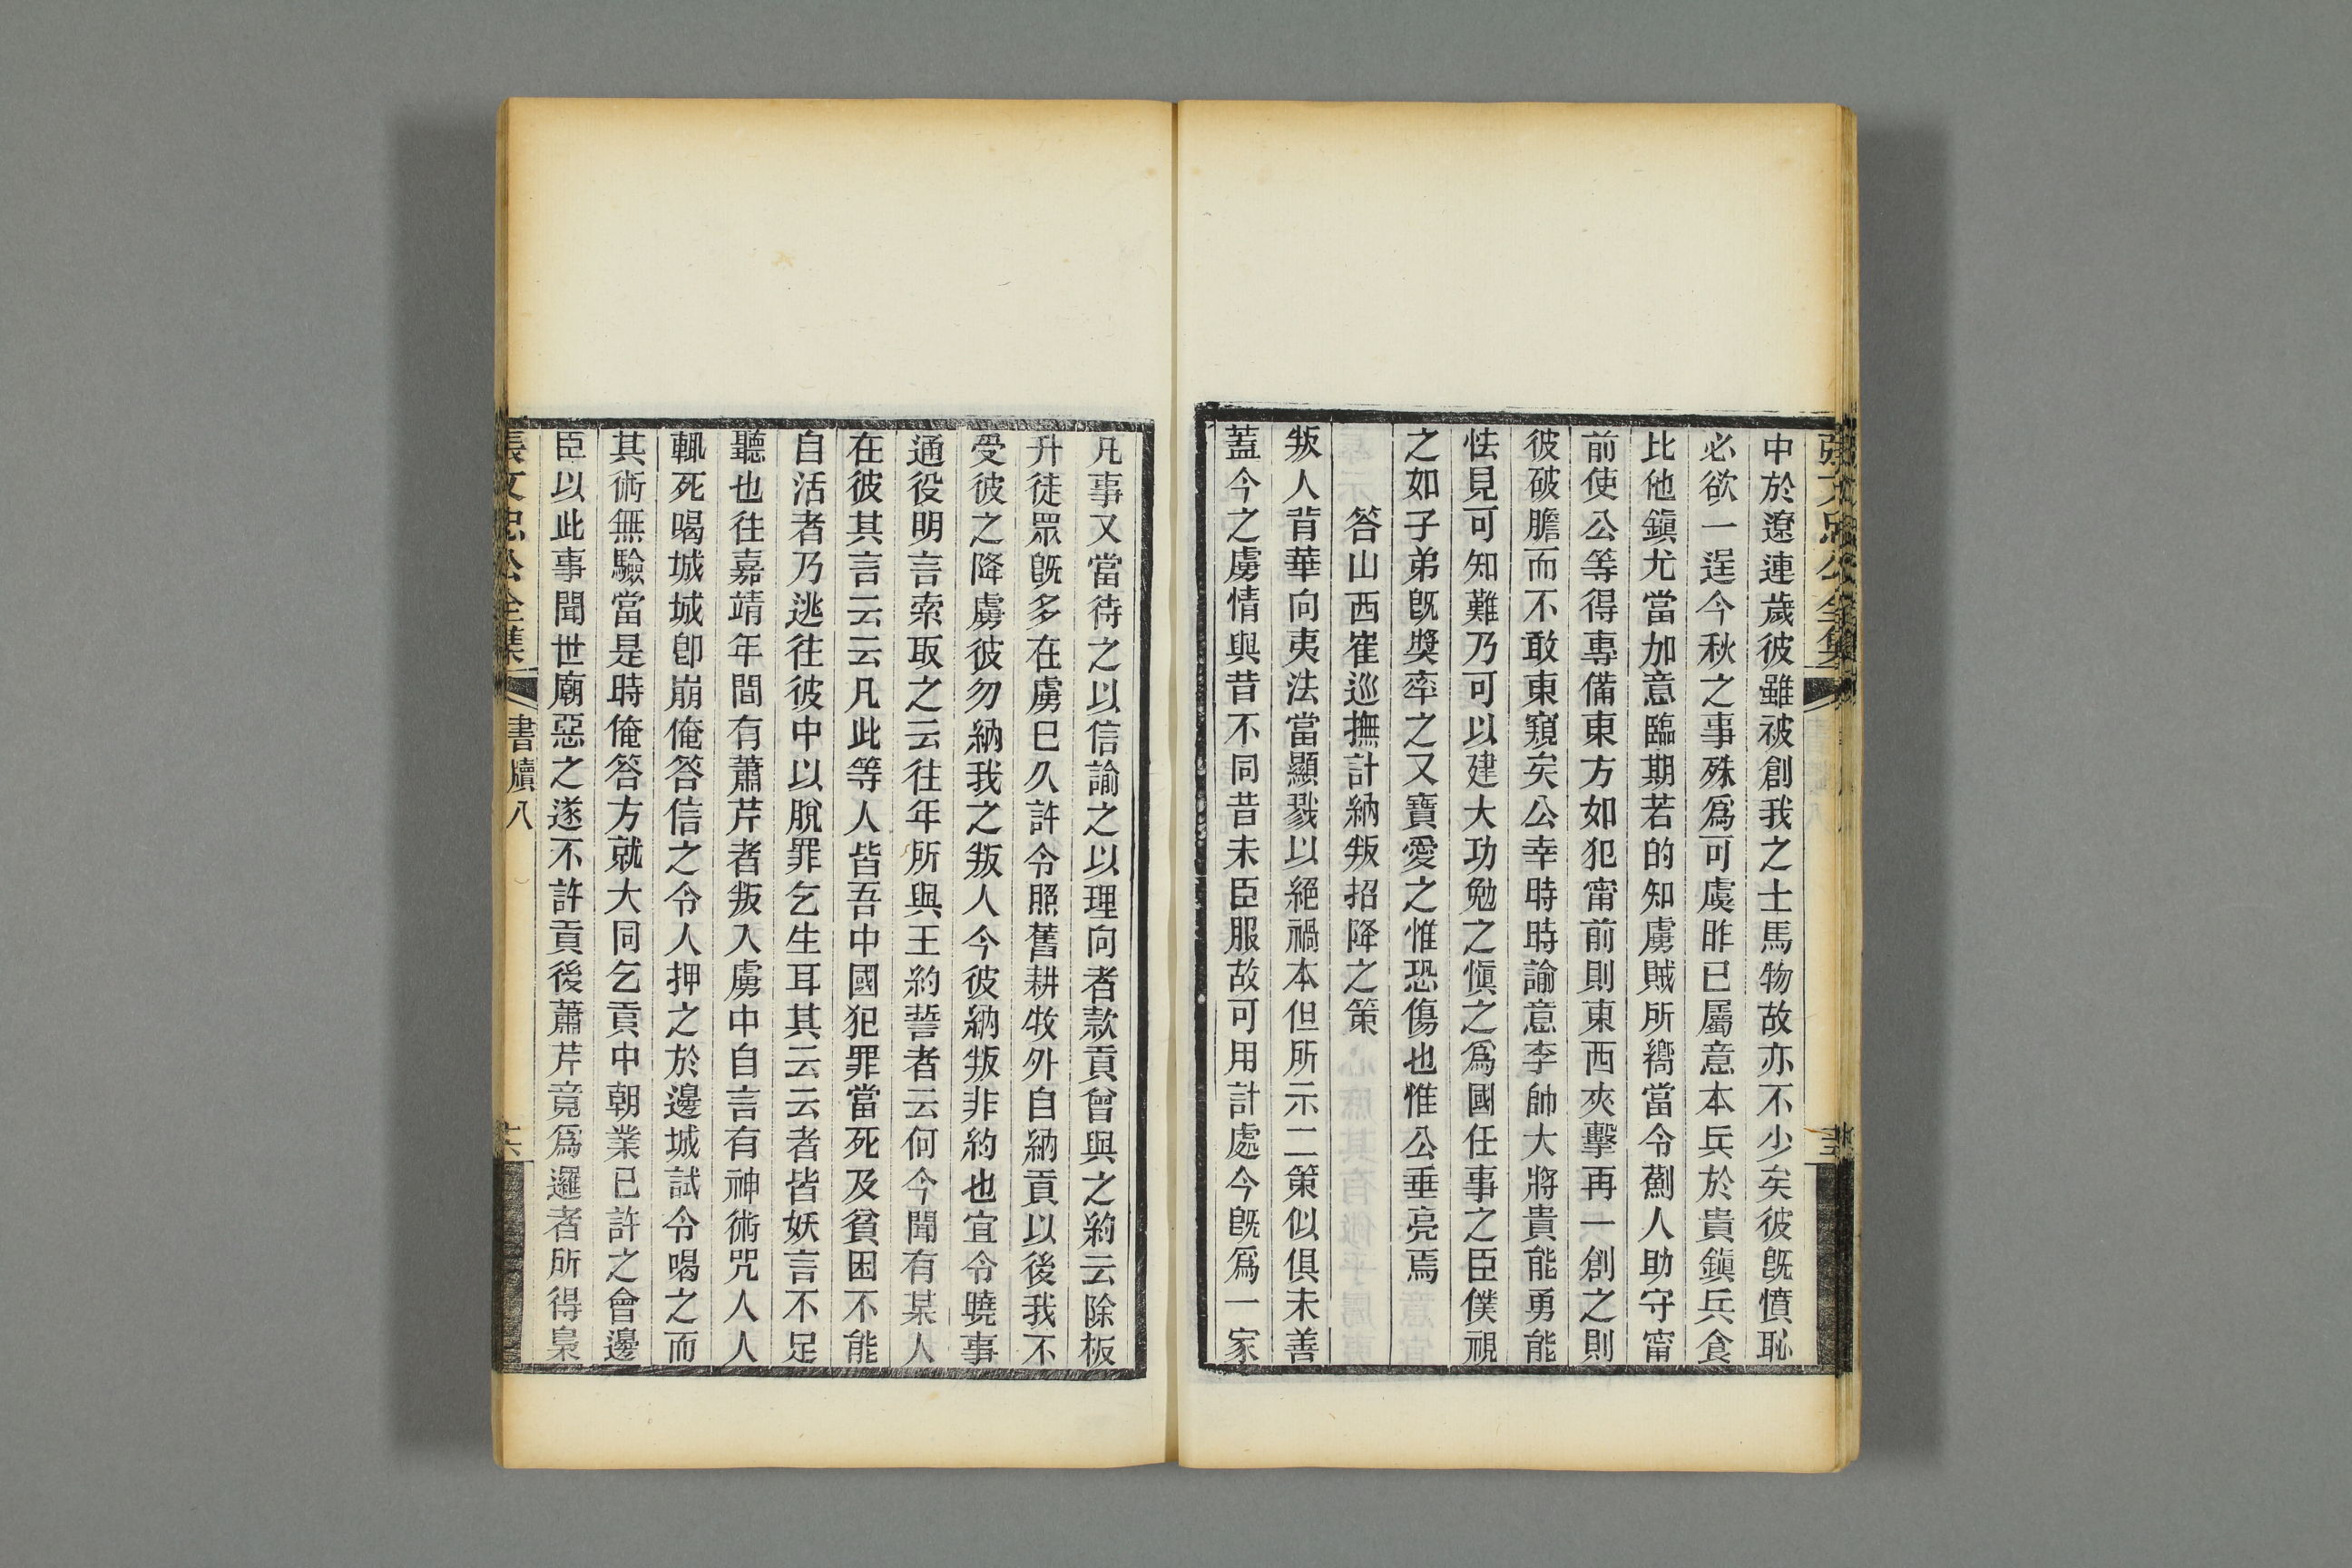 中於遼連歲彼雖被創我之士馬物故亦不少矣彼旣憤恥
必欲一逞今秋之事殊爲可虞昨已屬意本兵於貴鎭兵食
比他鎭尤當加意臨期若的知虜賊所嚮當令薊人助守甯
前使公等得專備東方如犯甯前則東西夾擊再一創之則
彼破膽而不敢東窺矣公幸時時諭意李帥大將貴能勇能
怯見可知難乃可以建大功勉之愼之爲國任事之臣僕視
之如子弟旣獎率之又寶愛之惟恐傷也惟公垂亮焉
答山西崔巡撫計納叛招降之策
叛人背華向夷法當顯戮以絕禍本但所示二策似俱未善
蓋今之虜情與昔不同昔未臣服故可用計處今旣爲一家
凡事又當待之以信諭之以理向者款貢曾與之約云除板
升徒眾旣多在虜已久許令照舊耕牧外自納貢以後我不
受彼之降虜彼勿納我之叛人今彼納叛非約也宜令曉事
通役明言索取之云往年所與王約誓者云何今聞有某人
在彼其言云云凡此等人皆吾中國犯罪當死及貧困不能
自活者乃逃往彼中以脫罪乞生耳其云云者皆妖言不足
聽也往嘉靖年間有蕭芹者叛入虜中自言有神術咒人人
輒死喝城城卽崩俺答信之令人押之於邊城試令喝之而
其術無驗當是時俺答方就大同乞貢中朝業已許之會邊
臣以此事聞世廟惡之遂不許貢後蕭芹竟爲邏者所得梟
張文忠公全集 書牘八 十六